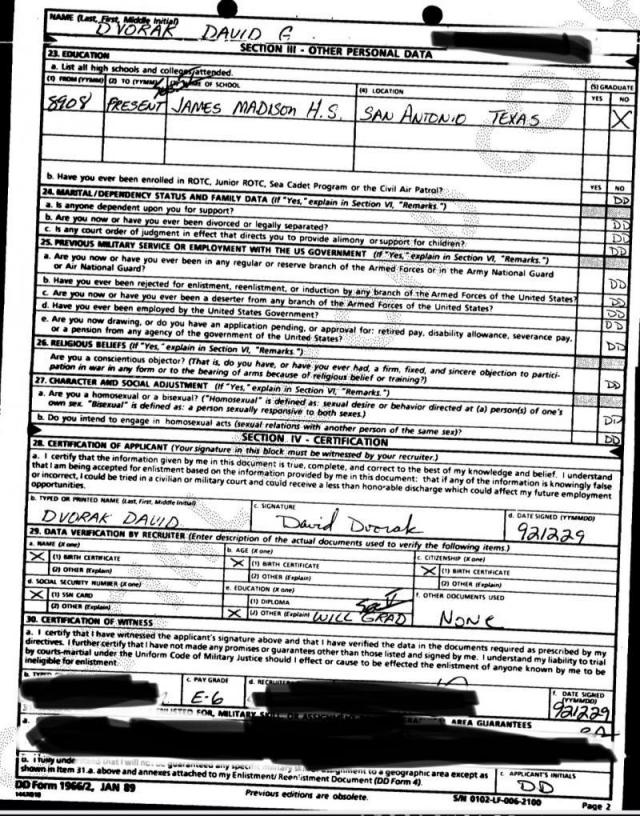 NAME (Last, First, Middle Initial)
DVORAK DAVID G
SECTION III - OTHER PERSONAL DATA
23. EDUCATION
a. List all high schools and colleges attended.
(1) FROM (YYMM) (2) TO (YYMM) OF SCHOOL (4) LOCATION (5) GRADUATE
YES NO
8908 PRESENT JAMES MADISON H.S. SAN ANTONIO TEXAS X
b. Have you ever been enrolled in ROTC, Junior ROTC, Sea Cadet Program or the Civil Air Patrol? YES NO
24. MARITAL/DEPENDENCY STATUS AND FAMILY DATA (If "Yes," explain in Section VI, "Remarks.") DD
a. Is anyone dependent upon you for support?
b. Are you now or have you ever been divorced or legally separated? DD
c. Is any court order of judgment in effect that directs you to provide alimony or support for children? DD
25. PREVIOUS MILITARY SERVICE OR EMPLOYMENT WITH THE US GOVERNMENT (If "Yes," explain in Section VI, "Remarks.") DD
a. Are you now or have you ever been in any regular or reserve branch of the Armed Forces or in the Army National Guard
or Air National Guard? DD
b. Have you ever been rejected for enlistment, reenlistment, or induction by any branch of the Armed Forces of the United States?
c. Are you now or have you ever been a deserter from any branch of the Armed Forces of the United States? DD
d. Have you ever been employed by the United States Government? DD
e. Are you now drawing, or do you have an application pending, or approval for: retired pay, disability allowance, severance pay,
or a pension from any agency of the government of the United States? DD
26. RELIGIOUS BELIEFS (If "Yes," explain in Section VI, "Remarks.")
Are you a conscientious objector? (That is, do you have, or have you ever had, a firm, fixed, and sincere objection to partici-
pation in war in any form or to the bearing of arms because of religious belief or training?) DD
27. CHARACTER AND SOCIAL ADJUSTMENT (If "Yes," explain in Section VI, "Remarks.")
a. Are you a homosexual or a bisexual? ("Homosexual" is defined as: sexual desire or behavior directed at (a) person(s) of one's
own sex. "Bisexual" is defined as: a person sexually responsive to both sexes.) DD
b. Do you intend to engage in homosexual acts (sexual relations with another person of the same sex)? DD
SECTION IV - CERTIFICATION
28. CERTIFICATION OF APPLICANT (Your signature in this block must be witnessed by your recruiter.)
a. I certify that the information given by me in this document is true, complete, and correct to the best of my knowledge and belief. I understand
that I am being accepted for enlistment based on the information provided by me in this document: that if any of the information is knowingly false
or incorrect, I could be tried in a civilian or military court and could receive a less than honorable discharge which could affect my future employment
opportunities.
b. TYPED OR PRINTED NAME (Last, First, Middle Initial) c. SIGNATURE d. DATE SIGNED (YYMMDD)
DVORAK DAVID David Dvorak 921229
29. DATA VERIFICATION BY RECRUITER (Enter description of the actual documents used to verify the following items.)
a. NAME (X one) b. AGE (X one) c. CITIZENSHIP (X one)
X (1) BIRTH CERTIFICATE X (1) BIRTH CERTIFICATE X (1) BIRTH CERTIFICATE
(2) OTHER (Explain) (2) OTHER (Explain) (2) OTHER (Explain)
d. SOCIAL SECURITY NUMBER (X one) e. EDUCATION (X one) f. OTHER DOCUMENTS USED
X (1) SSN CARD (1) DIPLOMA
(2) OTHER (Explain) X (2) OTHER (Explain) WILL GRAD NONE
30. CERTIFICATION OF WITNESS
a. I certify that I have witnessed the applicant's signature above and that I have verified the data in the documents required as prescribed by my
directives. I further certify that I have not made any promises or guarantees other than those listed and signed by me. I understand my liability to trial
by courts-martial under the Uniform Code of Military Justice should I effect or cause to be effected the enlistment of anyone known by me to be
ineligible for enlistment.
c. PAY GRADE d. RECRUITER f. DATE SIGNED (YYMMDD)
E-6 921229
FOR, MILITARY SKILL, OR AREA GUARANTEES
a.
b. I fully that I will not be guaranteed any to a geographic area except as
shown in Item 31.a. above and annexes attached to my Enlistment/Reenlistment Document (DD Form 4). c. APPLICANT'S INITIALS
DD
DD Form 1966/2, JAN 89 Previous editions are obsolete. S/N 0102-LF-006-2100 Page 2